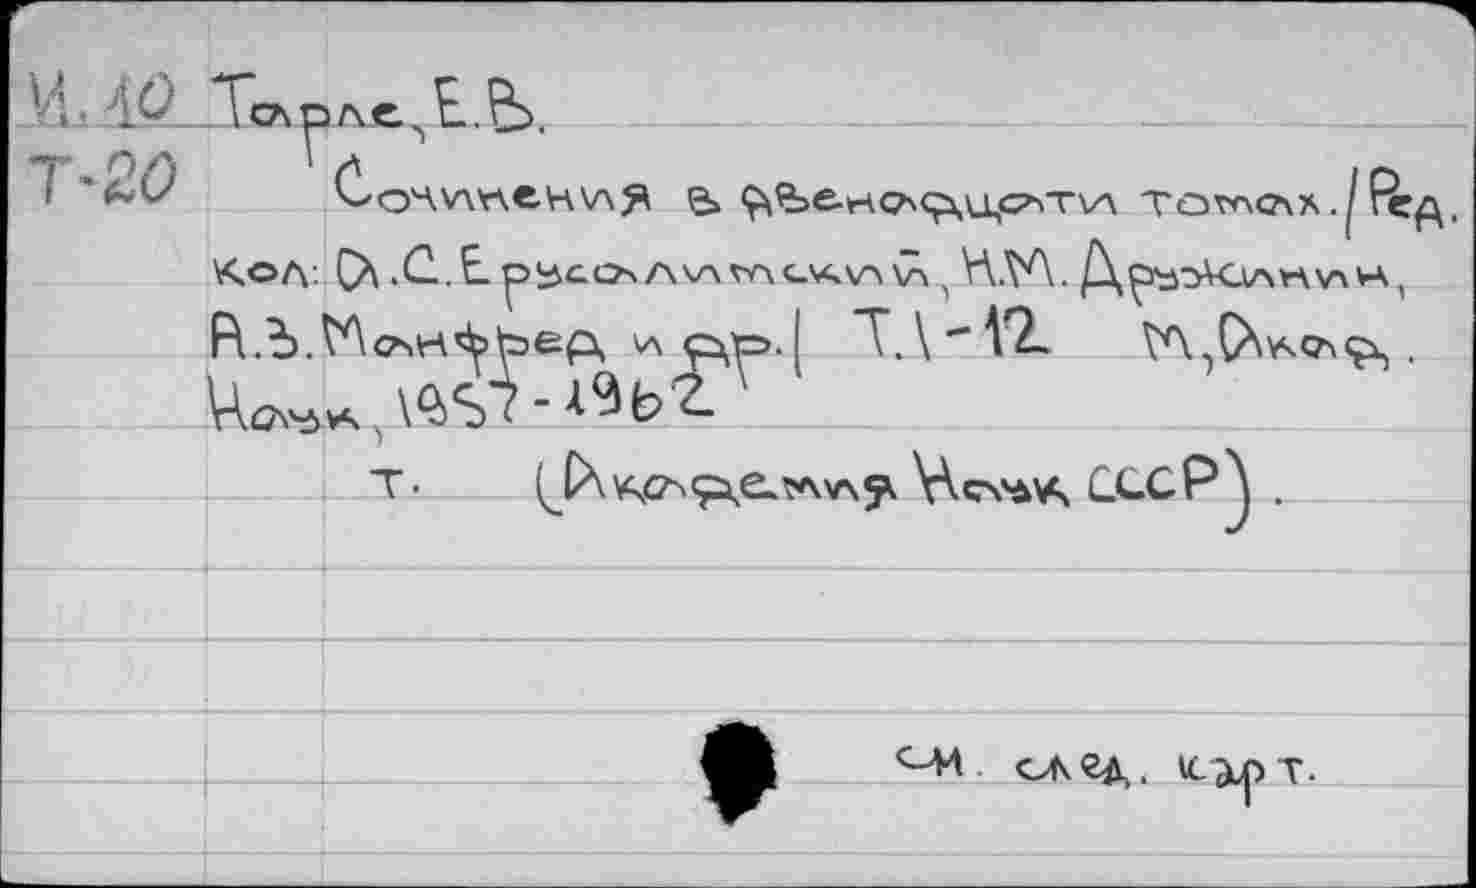 И.10 Тарле, Е.В.
Т-20 Сочинения в двенадцати томах./Ред.
кол: А.С. Ерусалимский, Н.М. Дружинин,
А.З. Манфред и др.| Т.1-12 М, Акад.
Наук, 1957-1962
т. (Академия Наук СССР).
см. след. карт.